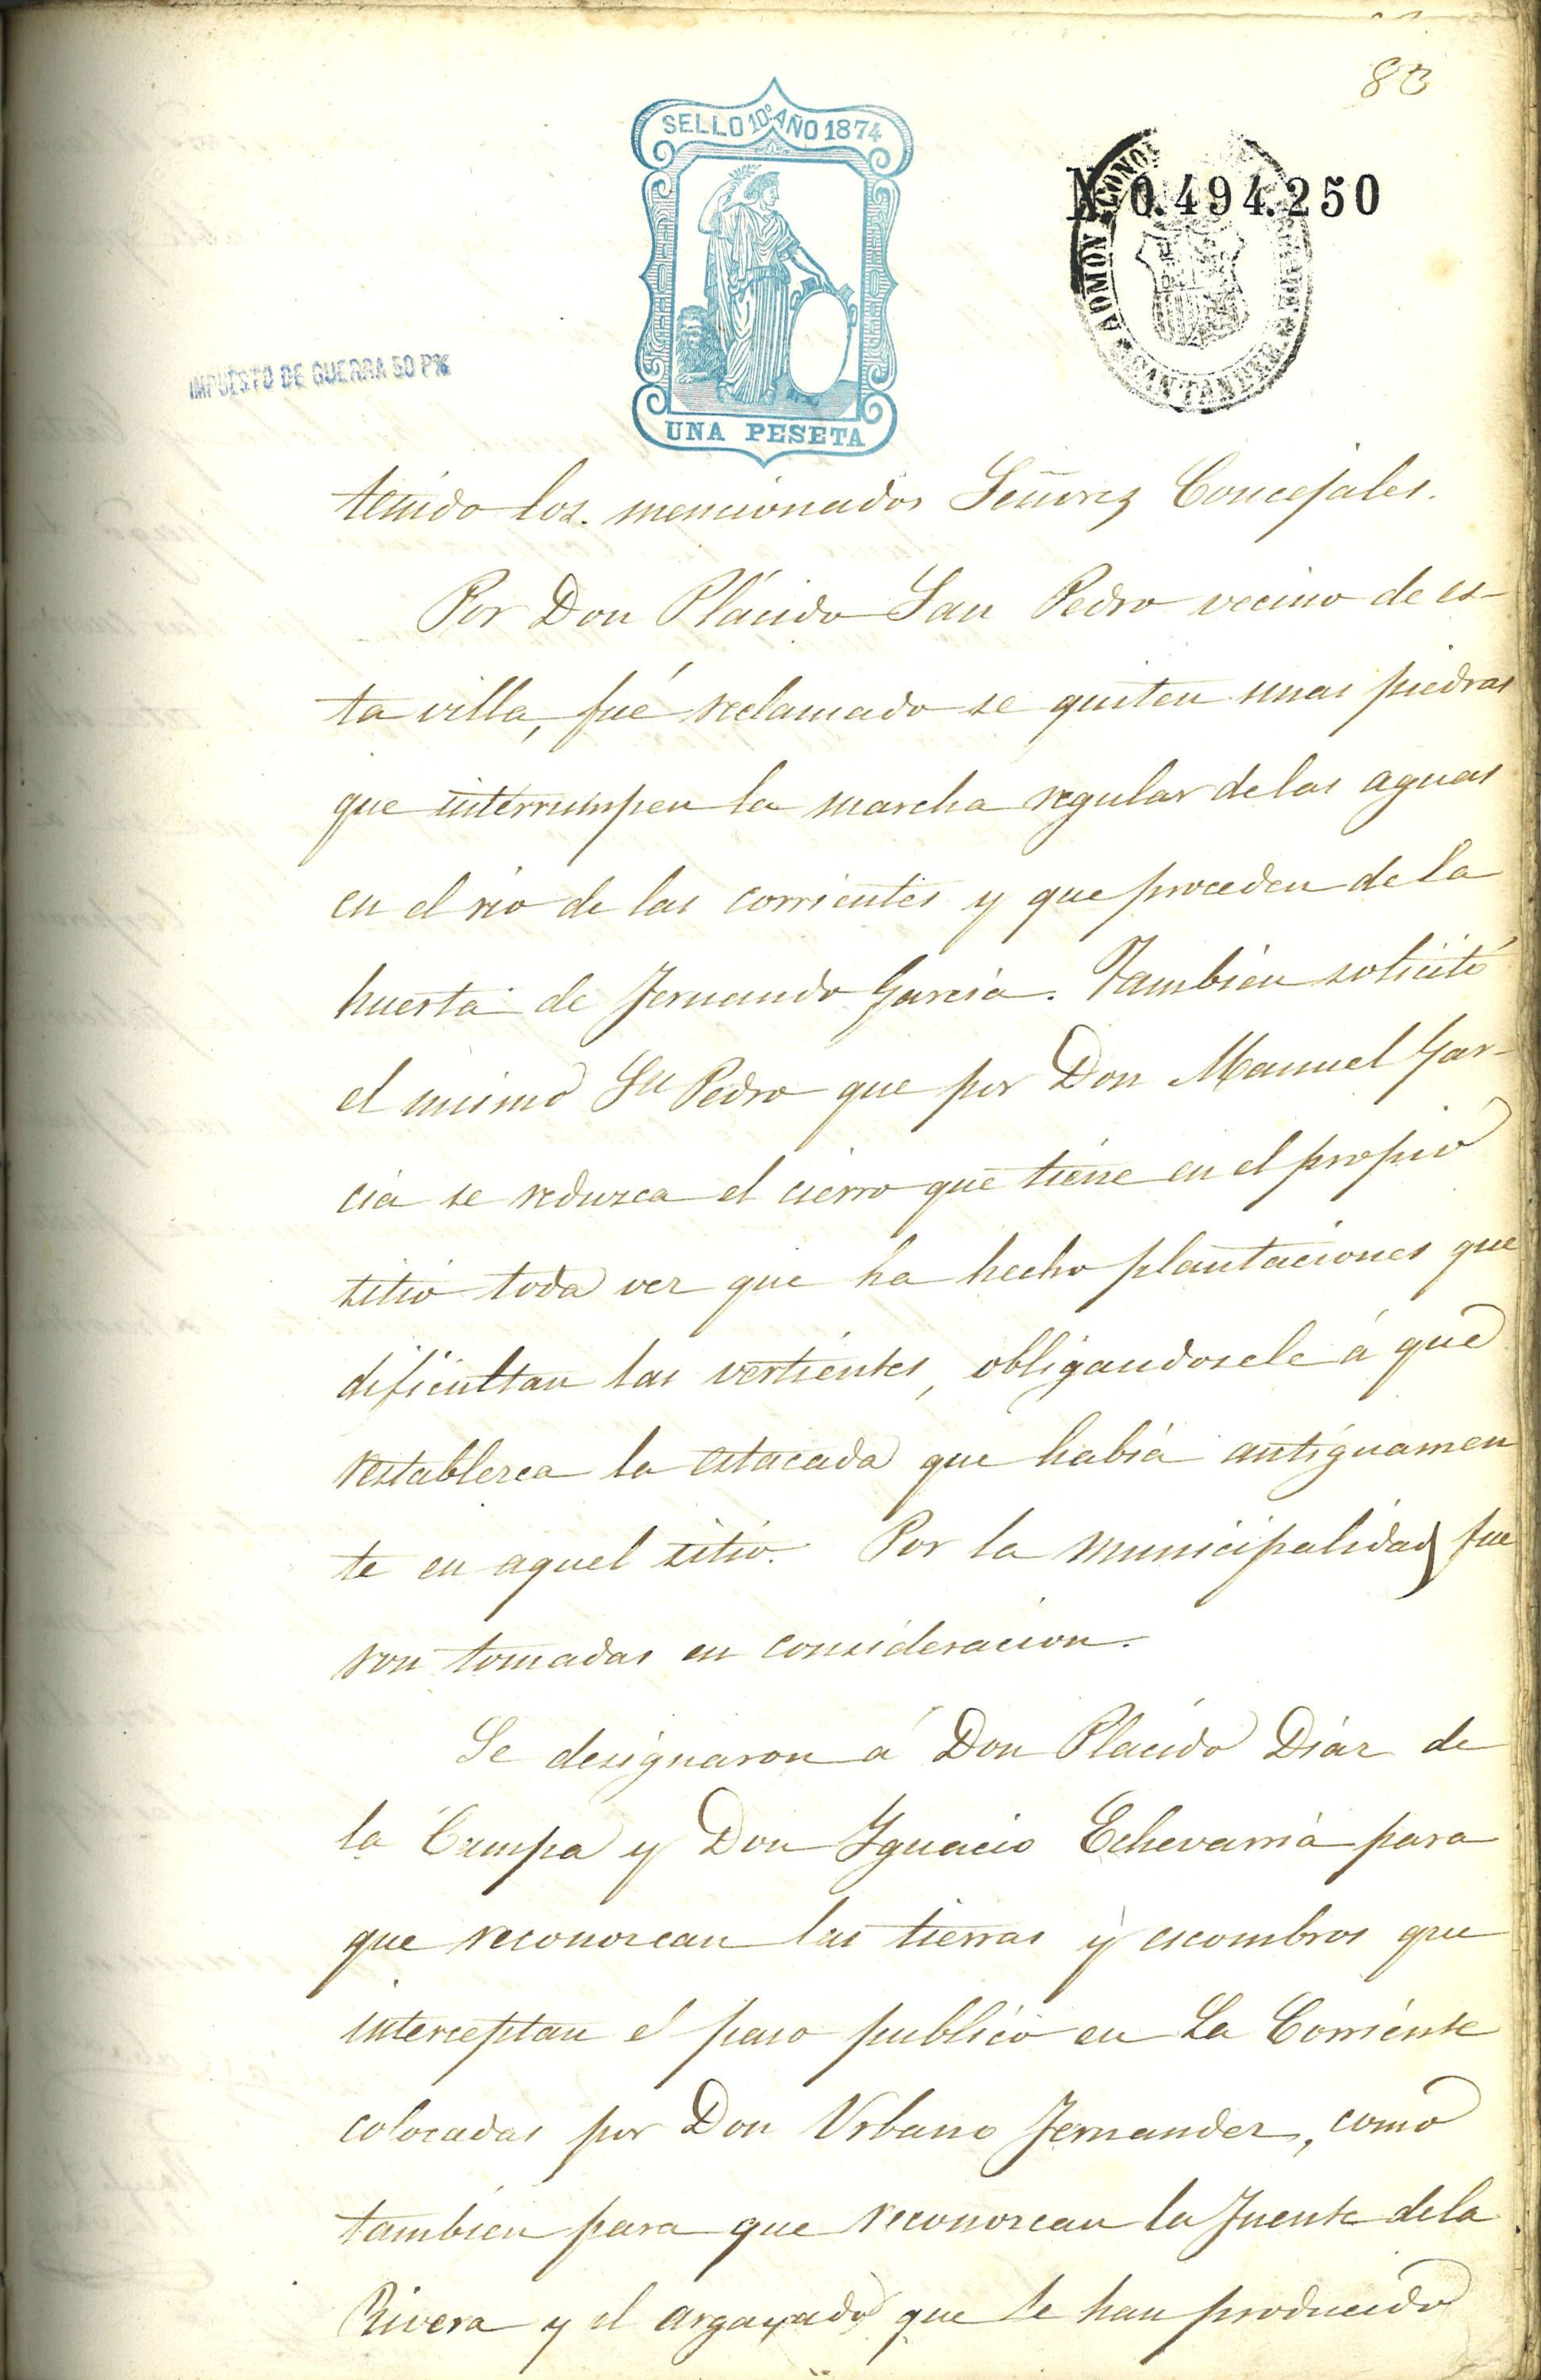 83
SELLO 10º AÑO 1874
Nº 0.494.250
ADMON ECONO
SANTANDER
IMPUESTO DE GUERRA 50 P%
UNA PESETA
tenido los. mencionados Señores Concejales.
Por Don Plácido San Pedro vecino de es-
ta villa, fué reclamado se quiten unas piedras
que interrumpen la marcha regular de las aguas
en el rio de las corrientes y que proceden de la
huerta de Fernando Garcia. Tambien solicitó
el mismo Sn Pedro que por Don Manuel Gar-
cia se reduzca el cierro que tiene en el propio
sitio toda vez que ha hecho plantaciones que
dificultan las vertientes, obligandosele á que
restablezca la estacada que habia antiguamen
te en aquel sitio. Por la municipalidad fue
ron tomadas en consideracion.
Se designaron á Don Placido Diaz de
la Campa y Don Ignacio Echevarria para
que reconozcan las tierras y escombros que
interceptan el paso publico en La Corriente
colocadas por Don Urbano Fernandez, como
tambien para que reconozcan la Fuente de la
Rivera y el argayado que se han producido